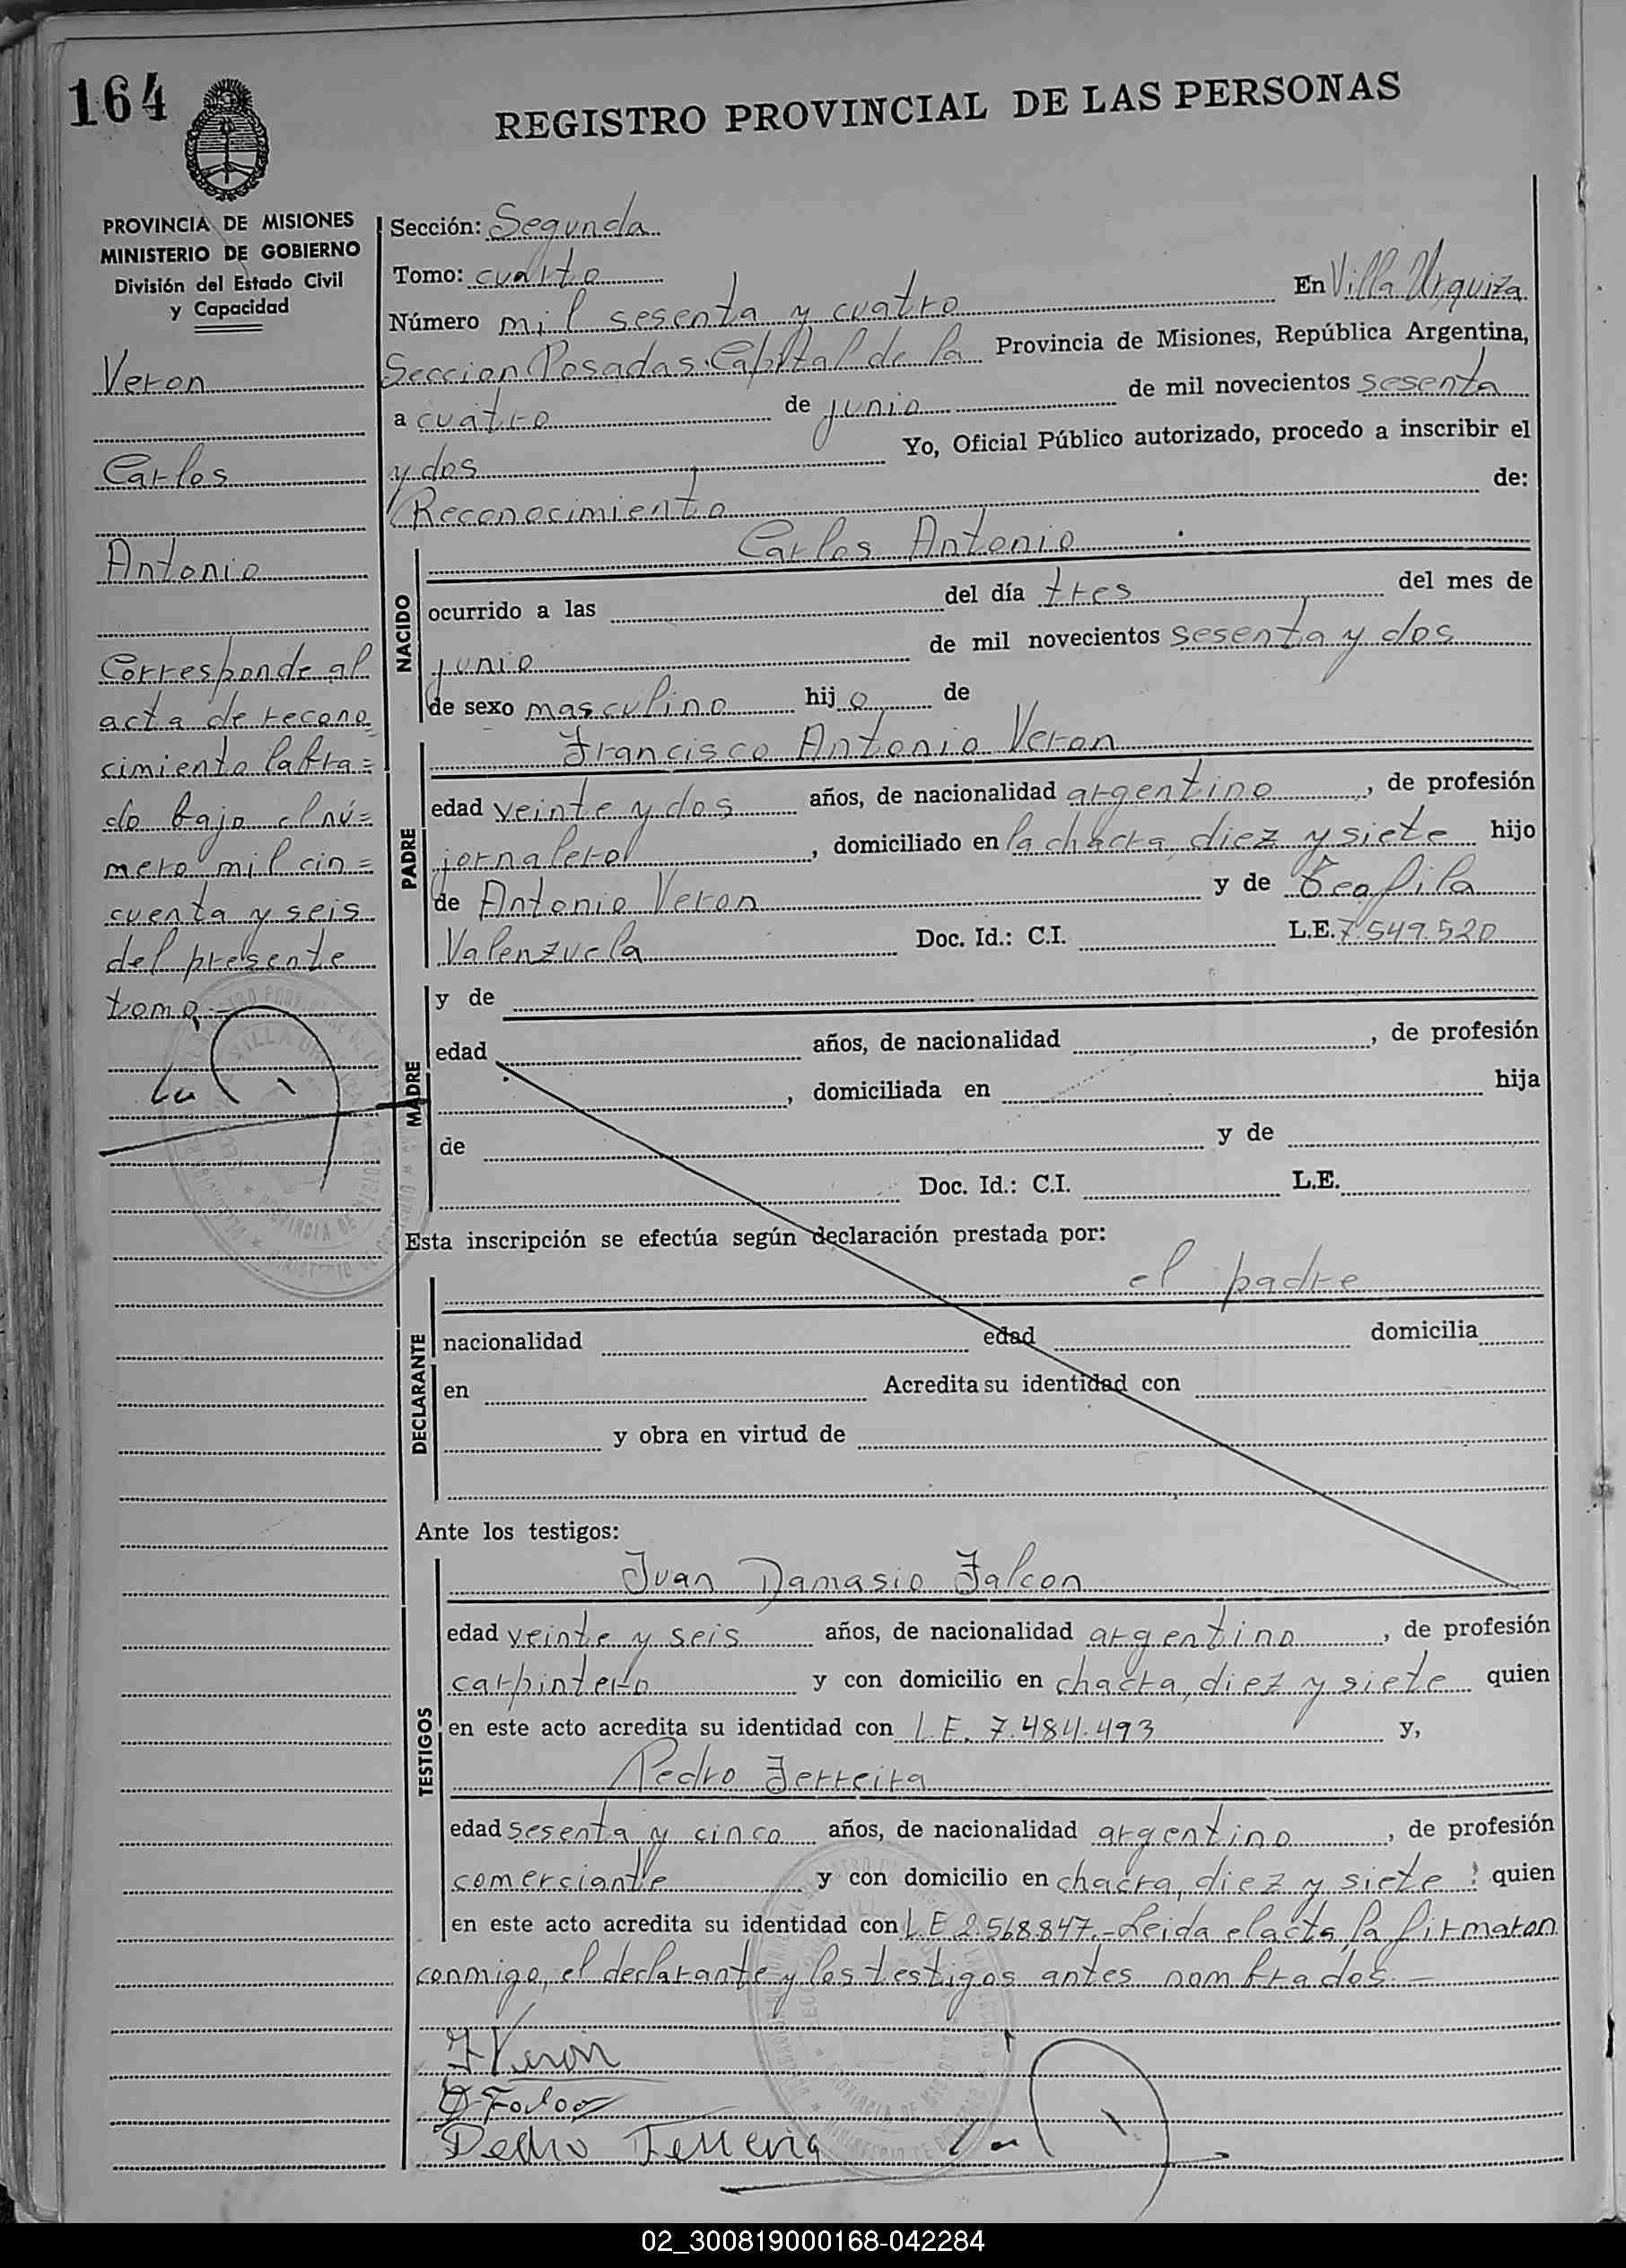 164
REGISTRO PROVINCIAL DE LAS PERSONAS
PROVINCIA DE MISIONES
MINISTERIO DE GOBIERNO
División del Estado Civil
y Capacidad
Veron
Carlos
Antonio
Corresponde al
acta de recono
cimiento labra=
do bajo el nú=
mero mil cin=
cuenta y seis
del presente
tomo.-
Sección: Segunda
Tomo: cuarto
Número mil sesenta y cuatro En Villa Urquiza
Seccion Posadas Capital de la Provincia de Misiones, República Argentina,
a cuatro de junio de mil novecientos sesenta
y dos Yo, Oficial Público autorizado, procedo a inscribir el
Reconocimiento de:
NACIDO
Carlos Antonio
ocurrido a las del día tres del mes de
junio de mil novecientos sesenta y dos
de sexo masculino hijo de
PADRE
Francisco Antonio Veron
edad veinte y dos años, de nacionalidad argentino, de profesión
jornalero, domiciliado en la chacra diez y siete hijo
de Antonio Veron y de Teofila
Valenzuela Doc. Id.: C.I. L.E. 7.549.520
MADRE
y de
edad años, de nacionalidad , de profesión
, domiciliada en hija
de y de
Doc. Id.: C.I. L.E.
Esta inscripción se efectúa según declaración prestada por:
DECLARANTE
el padre
nacionalidad edad domicilia
en Acredita su identidad con
y obra en virtud de
Ante los testigos:
TESTIGOS
Juan Damasio Falcon
edad veinte y seis años, de nacionalidad argentino, de profesión
carpintero y con domicilio en chacra, diez y siete quien
en este acto acredita su identidad con L.E. 7.484.493 y,
Pedro Ferreira
edad sesenta y cinco años, de nacionalidad argentino, de profesión
comerciante y con domicilio en chacra, diez y siete quien
en este acto acredita su identidad con L.E 2.568.847.- Leida el acta, la firmaron
conmigo, el declarante y los testigos antes nombrados.-
F Veron
Pedro Ferreria
02_300819000168-042284